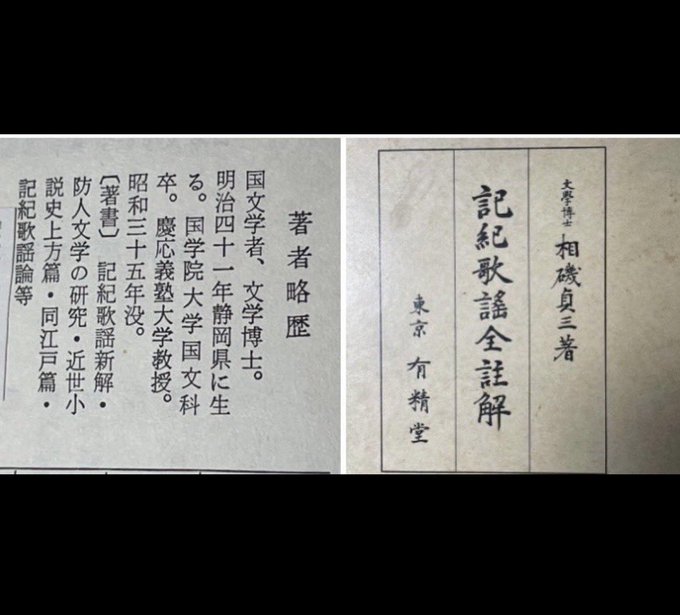 著者略歴
国文学者、文学博士。
明治四十一年静岡県に生
る。国学院大学国文科
卒。慶応義塾大学教授。
昭和三十五年没。
〔著書〕 記紀歌謡新解・
防人文学の研究・近世小
説史上方篇・同江戸篇・
記紀歌謡論等
文學博士 相磯貞三著
記紀歌謠全註解
東京 有精堂